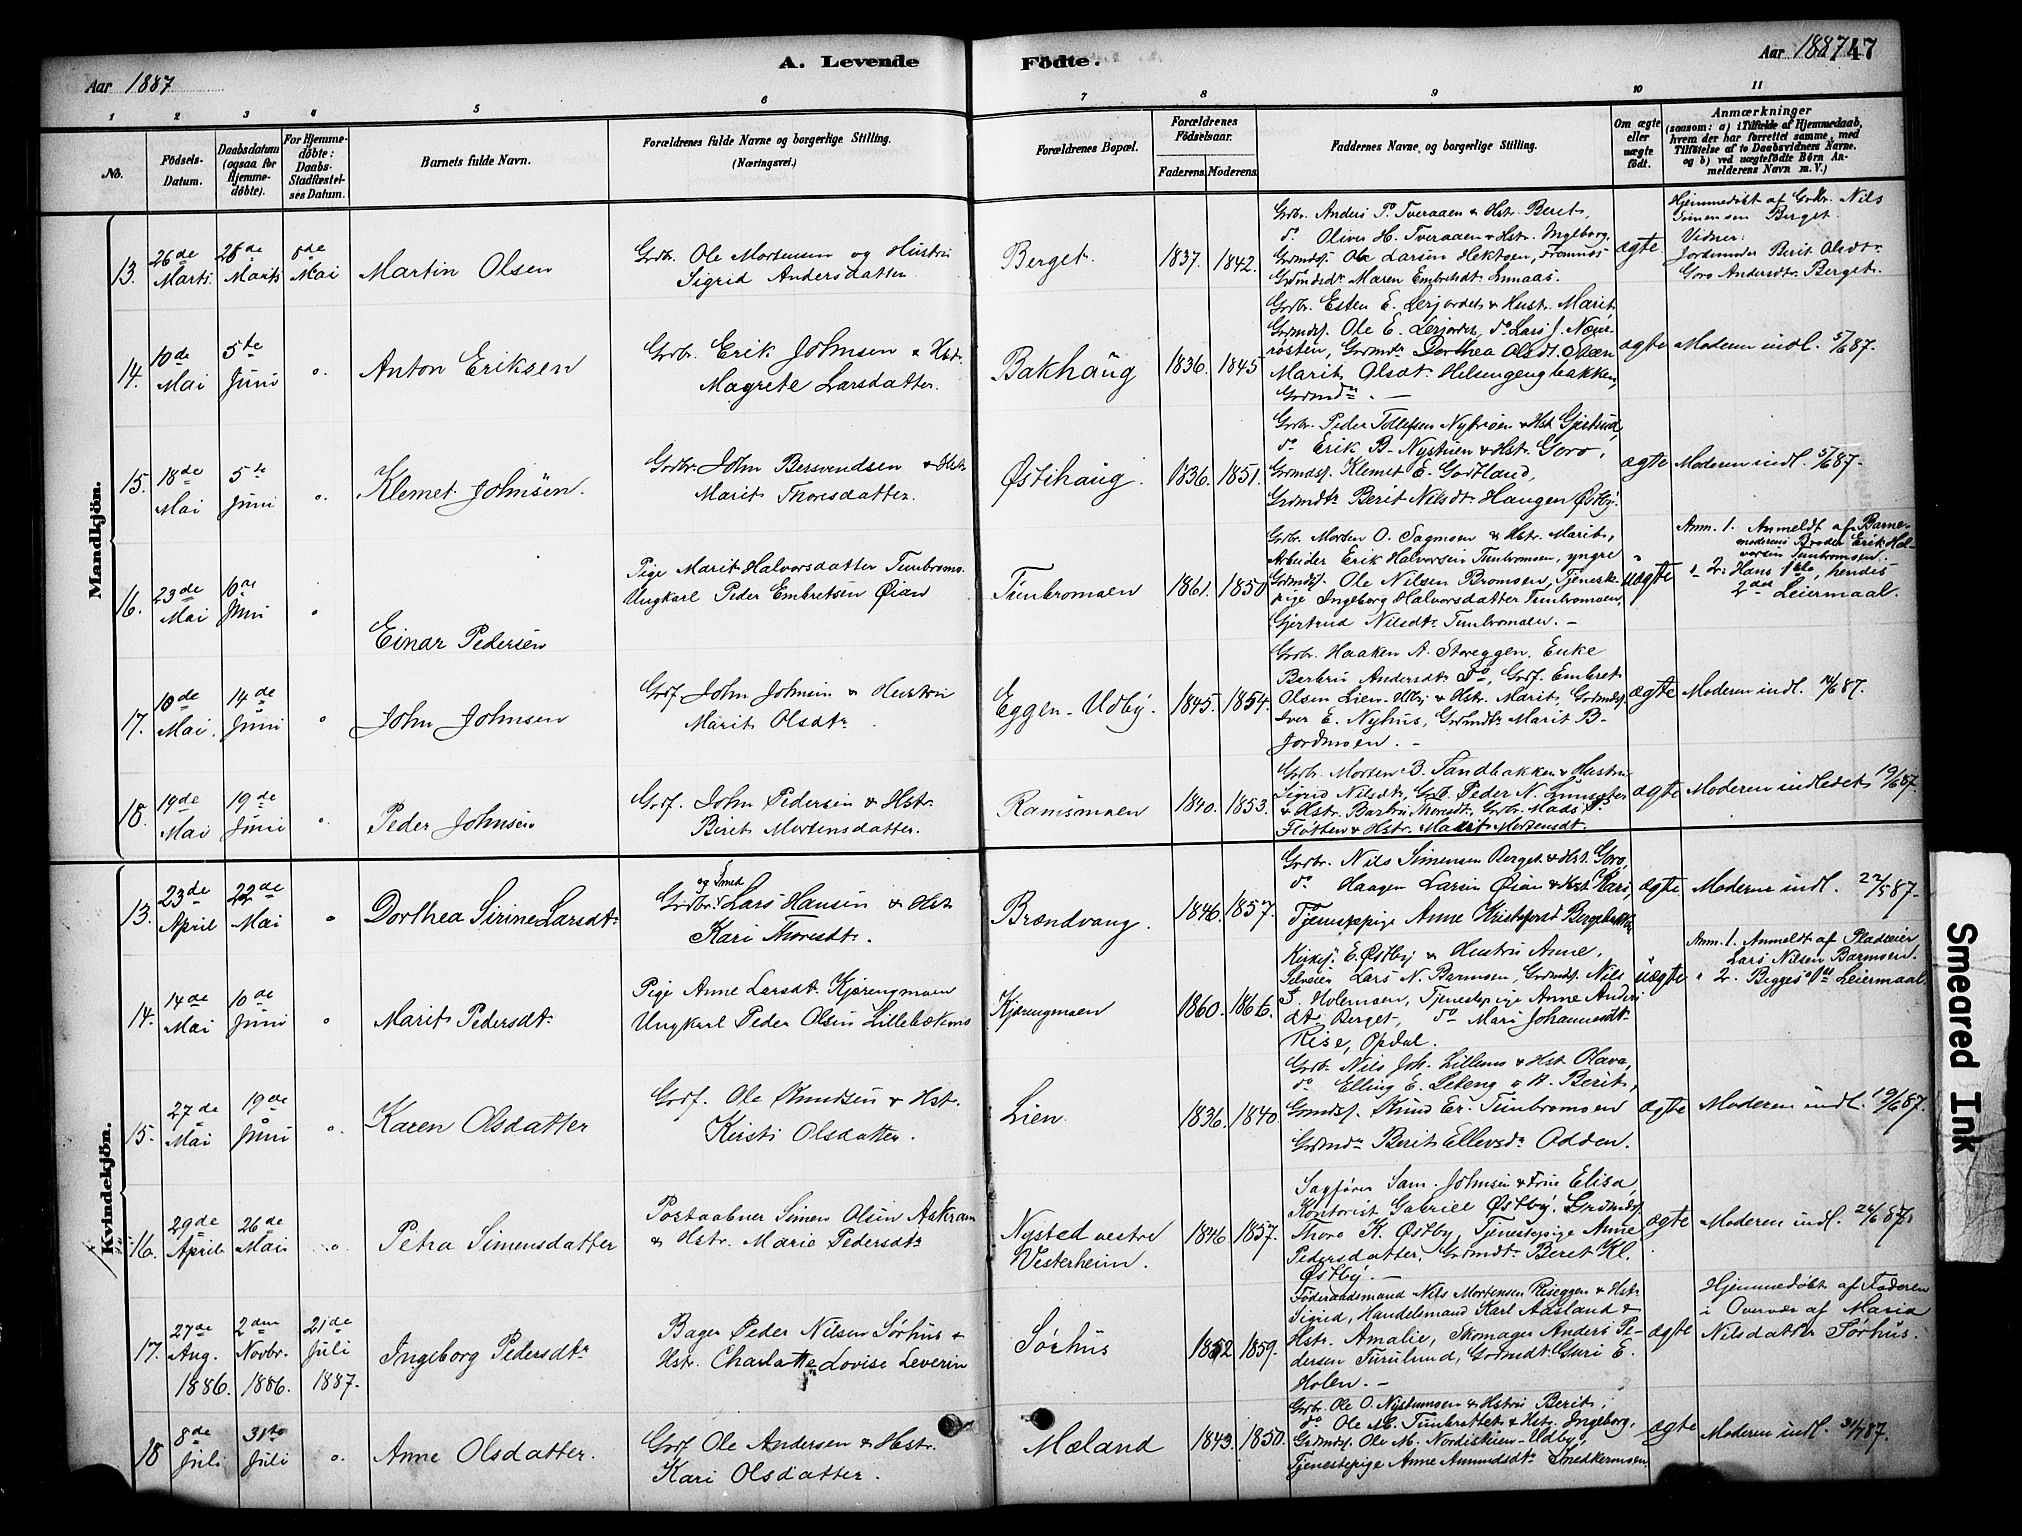 Aar 1887
A. Levende
Födte.
Aar 1887
47
1 2 3 4 5 6 7 8 9 10 11
No.
Födsels-
Datum.
Daabsdatum
(ogsaa for
Hjemme-
døbte).
For Hjemme-
døbte:
Daabs-
Stadfæstel-
ses Datum.
Barnets fulde Navn.
Forældrenes fulde Navne og borgerlige Stilling.
(Næringsvei.)
Forældrenes Bopæl.
Forældrenes
Födselsaar.
Faderens. Moderens.
Faddernes Navne, og borgerlige Stilling.
Om ægte
eller
uægte
født.
Anmærkninger
(saasom: a) i Tilfælde af Hjemmedaab,
hvem der har forrettet samme, med
Tilføielse af to Daabsvidners Navne.
og b) ved uægtefödte Börn An-
melderens Navn m. V.)
Mandkjön.
13. 26de Marts. 28de Marts 8de Mai
Martin Olsen
Grdbr. Ole Mortensen og Hustru
Sigrid Andersdatter.
Berget.
1837. 1842.
Grdbr. Anders P. Tveraaen & Hstr. Berit,
do Oliver H. Tveraaen & Hstr. Ingeborg,
Grdmdsf. Ole Larsen Hektoen,
Grdmdsdr. Maren Embretsdt.
ægte
Hjemmedøbt af Grdbr. Nils
Simensen Berget.
Vidner:
Jordmoder Berit Olsdtr.
Goro Andersdtr. Berget.
14. 10de Mai 5te Juni "
Anton Eriksen
Grdbr. Erik Johnsen & Hstr.
Magrete Larsdatter.
Bakhaug
1836. 1845
Grdbr. Esten E. Lerjordet & Hust. Marit
Grdmdsf. Ole E. Lerjordet, do Lars J. Nær-
røsten, Grdmdr. Dorthea Olsdt.
Marit Olsdt Hilsengengbakken,
Grdmdr. —
ægte
Moderen indl. 5/6 87.
15. 18de Mai 5te Juni "
Klemet Johnsen.
Grdbr. John Bersvendsen & Hstr
Marit Thoresdatter.
Østihaug.
1836. 1851.
Grdbr. Peder Tollefsen Nytrøen & Hst. Gjertrud,
do Erik B. Nystuen & Hst. Goro,
Grdmdsf. Klemet E. Godtland,
Grdmdtr Berit Nilsdt. Haugen Østby.
ægte
Moderen indl. 5/6 87.
16. 23de Mai 10de Juni "
Einar Pedersen
Pige Marit Halvorsdatter Tunbromo.
Ungkarl Peder Embretsen Øian
Tunbromoen
1861. 1850
Grdbr. Morten O. Sagmoen & Hstr. Marit,
Arbeider Erik Halvorsen Tunbromoen, yngre
Grdmdsf. Ole Nilsen Bromoen, Tjeneste-
pige Ingeborg Halvorsdatter Tunbromoen,
Gjertrud Nilsdt. Tunbromoen. —
uægte
Anm. 1. Anmeldt af Barne-
moderens Broder Erik Hal-
vorsen Tunbromoen.
" 2. Hans 1ste, hendes
2det Leiermaal.
17. 10de Mai. 14de Juni "
John Johnsen
Grdf. John Johnsen & Hustru
Marit Olsdtr.
Eggen-Udby.
1845. 1854.
Grdbr. Haaken A. Storeggen, Enke
Barbru Andersdt. do, Grdf. Embret
Olsen Lien-Udby & Hstr. Marit, Grdmdsf.
Iver E. Nyhus, Grdmdtr Marit B.
Jordmoen. —
ægte
Moderen indl. 14/6 87.
18. 19de Mai 19de Juni "
Peder Johnsen
Grdf. John Pedersen & Hstr.
Berit Mortensdatter.
Ramsmoen
1840. 1853.
Grdbr. Morten B. Sandbakken & Hustru
Sigrid Nilsdt. Grdb. Peder N.
& Hstr. Barbru Thoresdt. Grdbr. Mads
Fløtten & Hstr. Marit Mortensdt.
ægte
Moderen indledet 19/6 87.
Kvindekjön.
13. 23de April 22de Mai "
Dorthea Sirine Larsdt.
og Smed
Grdbr. Lars Hansen & Hst
Kari Thoresdtr.
Brændvang.
1846. 1857.
Grdbr. Nils Simensen Berget & Hst. Goro,
do Haagen Larsen Øian & Hst. Kari,
Tjenestepige Anne Kristofersd
ægte
Moderne indl. 22/5 87.
14. 14de Mai 10de Juni "
Marit Pedersdt.
Pige Anne Larsdt. Kjærengmoen
Ungkarl Peder Olsen Lillebækmo
Kjærengmoen
1860. 1866.
Kirkesf. E. Østby & Hustru Anne,
Selveier Lars N. Barmoen, Grdmdsf. Nils
J. Holemoen, Tjenestepige Anne Anders
dt. Berget, do Mari Johannesdt.
Rise, Opdal.
uægte
Anm. 1. Anmeldt af Pladseier
Lars Nilsen Barmoen.
" 2. Begges 1ste Leiermaal.
15. 27de Mai 19de Juni "
Karen Olsdatter
Grdf. Ole Knudsen & Hstr.
Kirsti Olsdatter.
Lien.
1836. 1840.
Grdbr. Nils Joh. Lillemo & Hst. Olava,
do Elling E. Løkeng & H. Berit,
Grmdsf. Knud Er. Tunbromoen
Grdmdr. Berit Ellevsdr Odden.
ægte
Moderen indl. 19/6 87.
16. 29de April 26de Mai "
Petra Simensdatter
Postaabner Simen Olsen Aakran
& Hstr. Marie Pedersdtr
Nysted vestre
Vesterheim.
1846 1857.
Sagfører Sam. Johnsen & Frue Elisa,
Kontorist Gabriel Østby, Grdmdsf.
Thore K. Østby, Tjenestepige Anne
Pedersdatter, Grdmdt. Beret Kl.
Østby. —
ægte
Moderen indl. 26/6 87.
17. 27de Aug. 1886. 2den Novbr. 1886. 21de Juli 1887.
Ingeborg Pedersdtr
Bager Peder Nilsen Sørhus &
Hstr. Charlotte Lovise Leverin
Sørhus
1852 1859.
Føderaadsmand Nils Mortensen Riseggen & Hstr
Sigrid, Handelsmand Karl Aasland &
Hstr. Amalie, Skomager Anders Pe-
dersen Furulund, Grdmdt. Guri E.
Holen. —
ægte
Hjemmedøbt af Faderen
i Overvær af Maria
Nilsdatter Sørhus.
18 8de Juli 31te Juli "
Anne Olsdatter.
Grdf Ole Andersen & Hstr.
Kari Olsdatter.
Mæland
1843. 1850.
Grdb. Ole O. Nystumoen & Hstru Berit,
do Ole M. Tunbrottet & Hstr. Ingeborg,
Grdmdsf. Ole M. Nordistuen-Udby,
Tjenestepige Anne Amundsdtr. Smedkermoen
ægte
Moderen indl. 31/7 87.
Smeared Ink